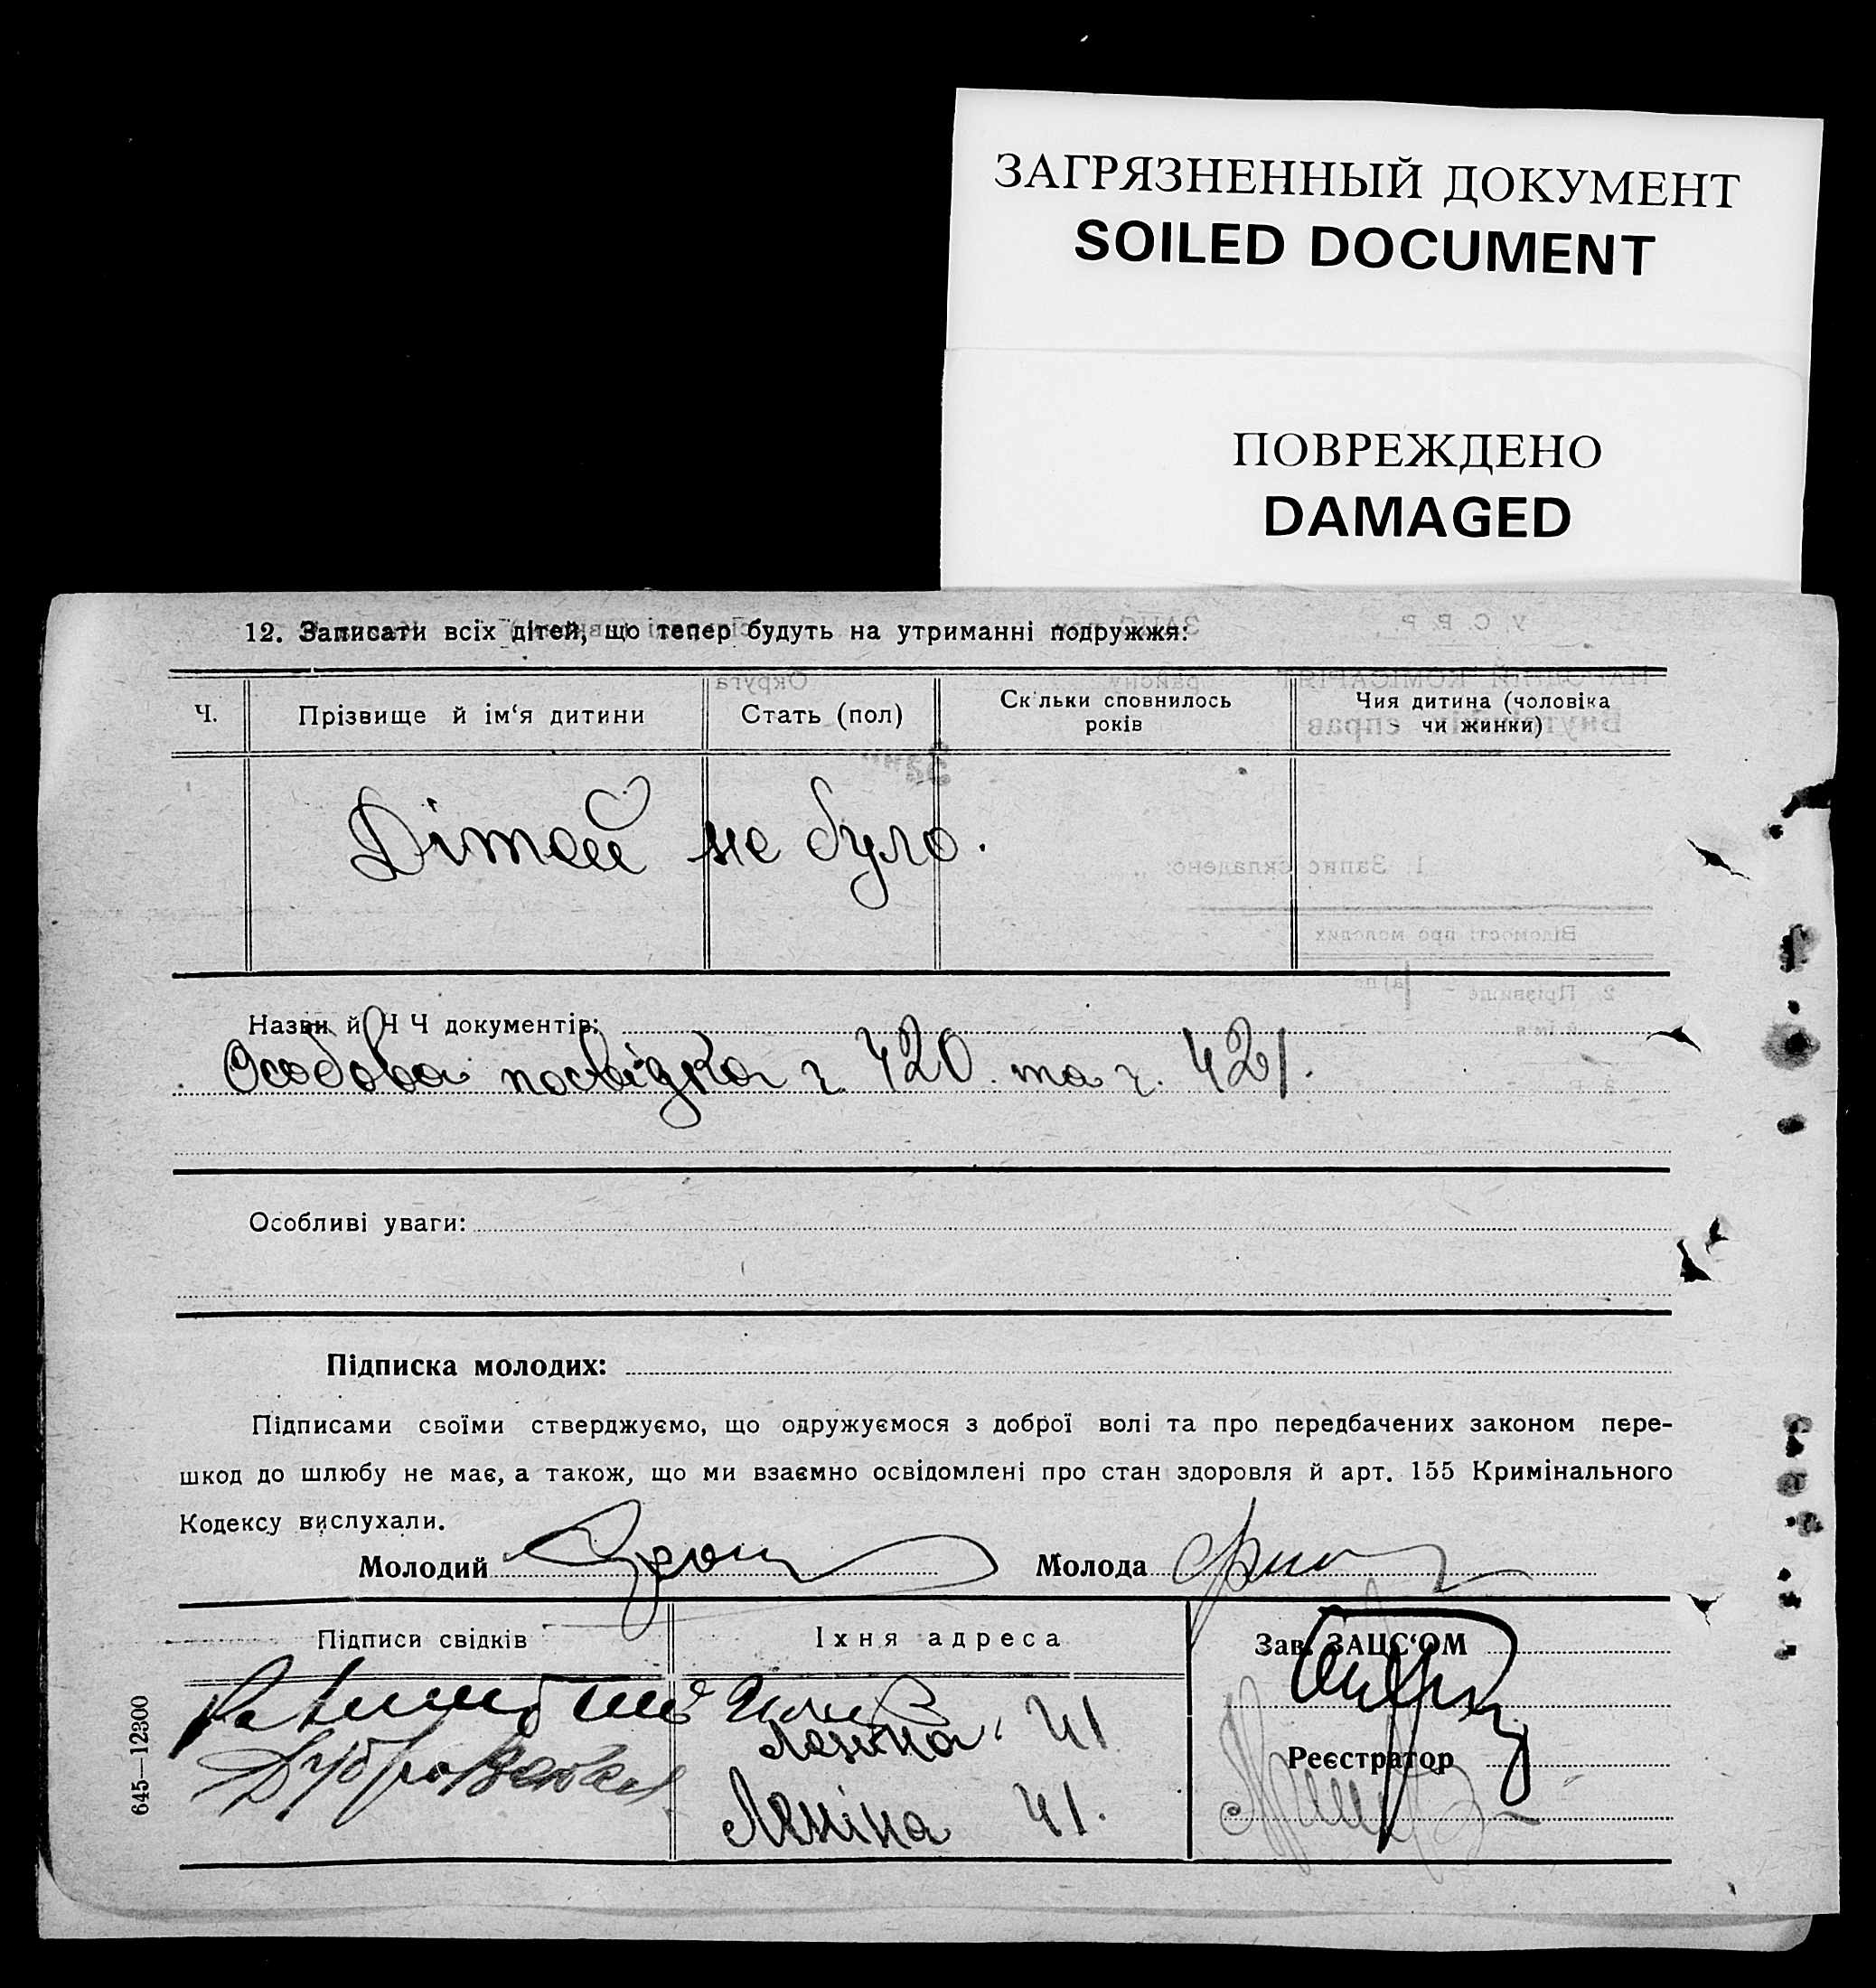 ЗАГРЯЗНЕННЫЙ ДОКУМЕНТ
SOILED DOCUMENT
ПОВРЕЖДЕНО
DAMAGED
12. Записати всіх дітей, що тепер будуть на утриманні подружжя:
Ч.
Прізвище й ім‘я дитини
Стать (пол)
Скільки сповнилось
років
Чия дитина (чоловіка
чи жинки)
Дітей не було.
Назви й Ч Ч документів:
Особова посвідка ч. 420. та ч. 421.
Особливі уваги:
Підписка молодих:
Підписами своїми стверджуємо, що одружуємося з доброї волі та про передбачених законом пере-
шкод до шлюбу не має, а також, що ми взаємно освідомлені про стан здоровля й арт. 155 Кримінального
Кодексу вислухали.
Молодий
Молода
Підписи свідків
Їхня адреса
Зав. ЗАЦС‘ОМ
41
Реєстратор
Леніна 41.
645—12300